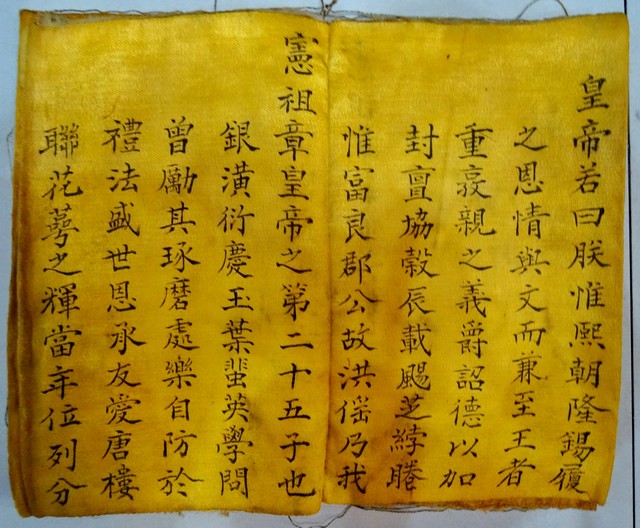 皇帝若曰朕惟熙朝隆錫履
之恩情與文而兼至王者
重親之義爵詔德以加
封亶協穀辰載颺芝綍睠
惟富良郡公故洪傜乃我
憲祖章皇帝之第二十五子也
銀潢衍慶玉葉蜚英學問
曾勵其琢磨處樂自防於
禮法盛世恩承友愛唐樓
聯花萼之輝當年位列分